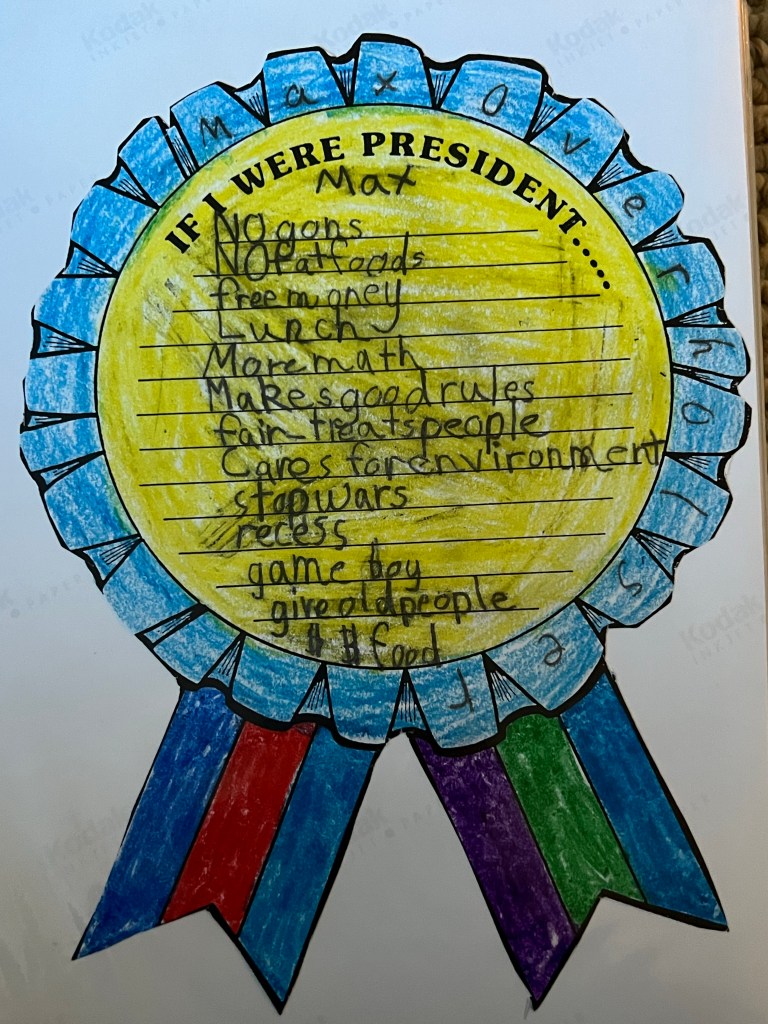 Max Overholser
IF I WERE PRESIDENT.....
Max
NO gons
NO fat foods
free money
Lunch
More math
Makes good rules
fair treats people
Cares for environment
stop wars
recess
game boy
give old people
$ $ food
Kodak
Kodak
Kodak
Kodak